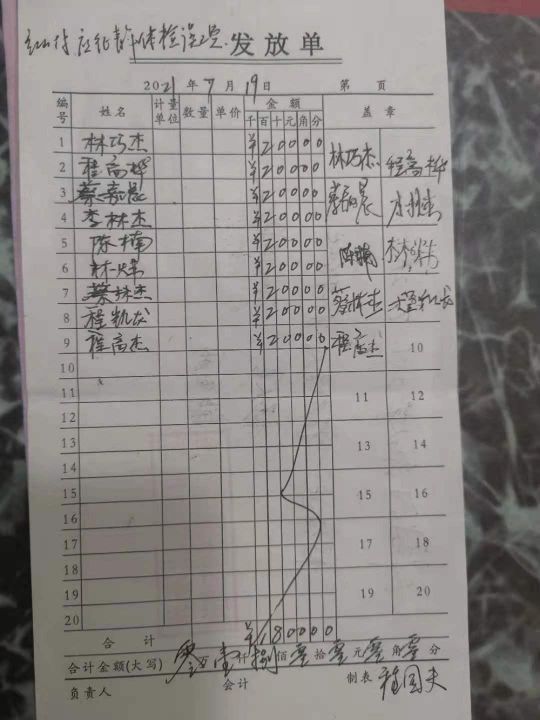 应征青年体检误工 发放单
2021年7月19日 第 页
编号 姓名 计量单位 数量 单价 金额 盖章
千 百 十 元 角 分
1 林巧杰 ¥20000 林巧杰
2 程高桦 ¥20000 程高桦
3 蔡嘉晨 ¥20000 蔡嘉晨
4 李林杰 ¥20000 李林杰
5 陈楠 ¥20000 陈楠
6 林 ¥20000 林
7 蔡林杰 ¥20000 蔡林杰
8 程凯龙 ¥20000 程凯龙
9 程高杰 ¥20000 程高杰 10
10
11 11 12
12
13 13 14
14
15 15 16
16
17 17 18
18
19 19 20
20
合计 ¥180000
合计金额(大写) 零万壹仟捌佰零拾零元零角零分
负责人 会计 制表 程国夫